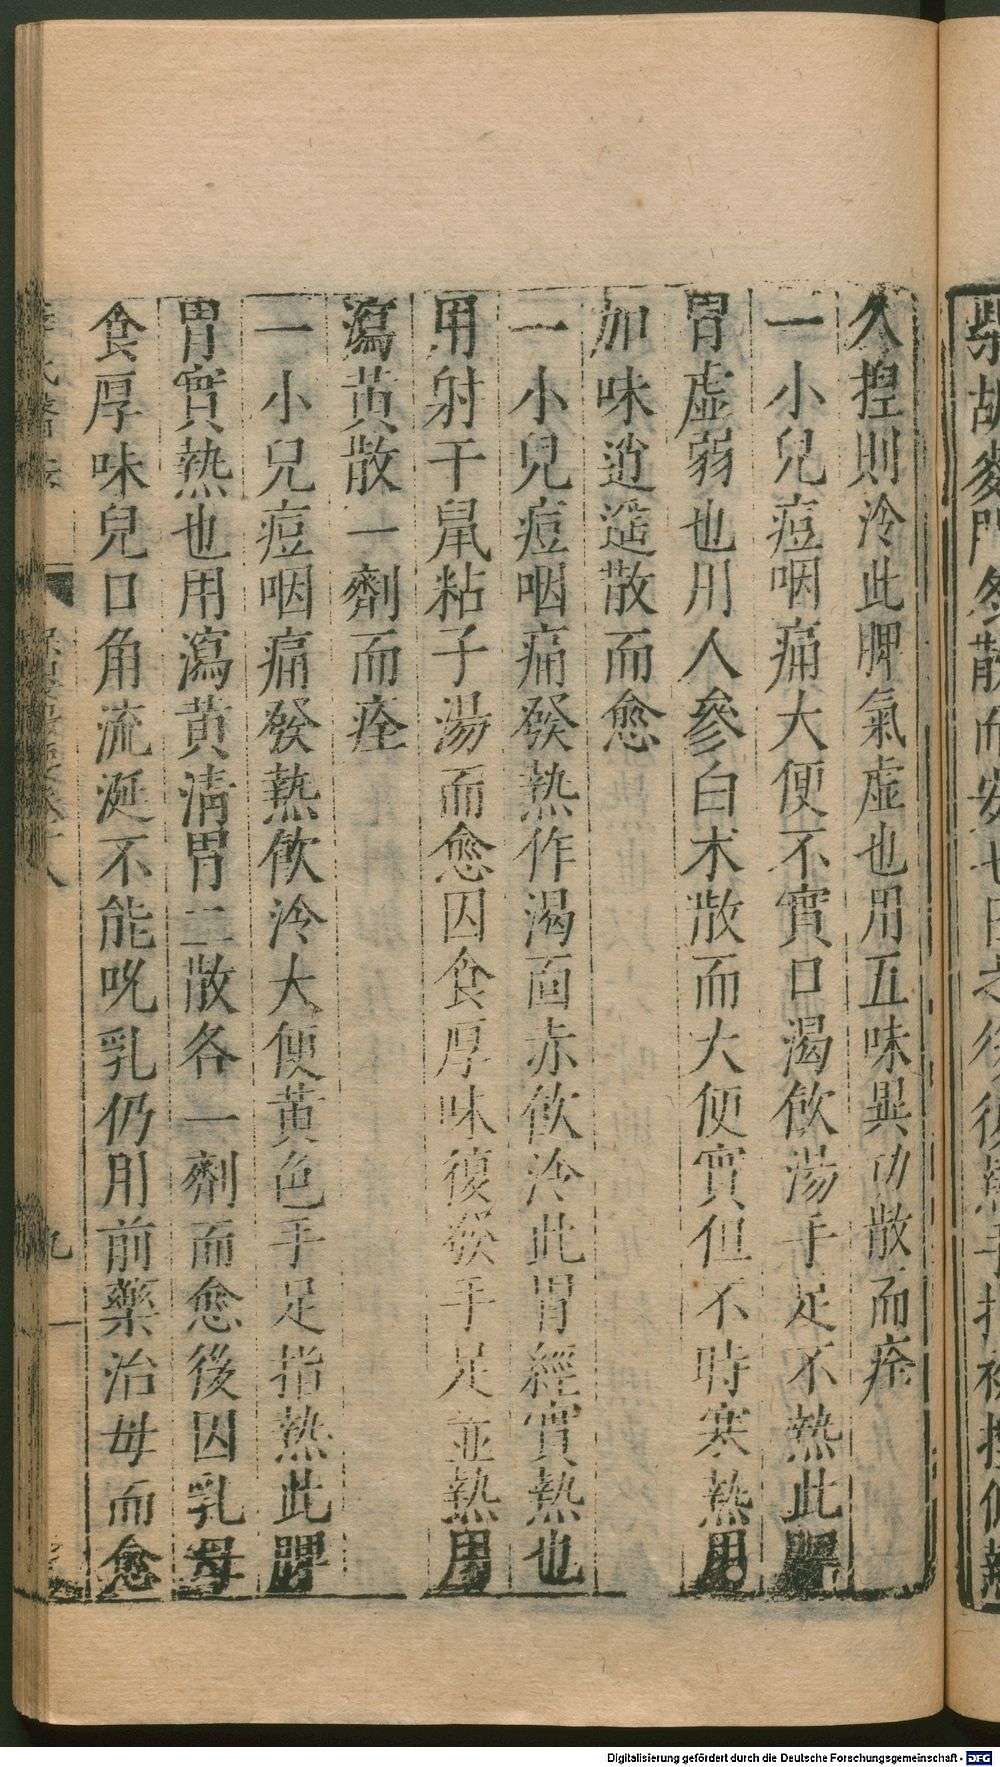 久揑則冷此脾氣虛也用五味異功散而痊
一小兒痘咽痛大便不實口渴飲湯手足不熱此脾
胃虛弱也用人參白术散而大便實但不時寒熱用
加味逍遥散而愈
一小兒痘咽痛發熱作渴面赤飲冷此胃經實熱也
用射干鼠粘子湯而愈因食厚味復發手足並熱用
瀉黃散一劑而痊
一小兒痘咽痛發熱飲冷大便黃色手足指熱此脾
胃實熱也用瀉黃清胃二散各一劑而愈後因乳母
食厚味兒口角流涎不能吮乳仍用前藥治母而愈
九
Digitalisierung gefördert durch die Deutsche Forschungsgemeinschaft - DFG